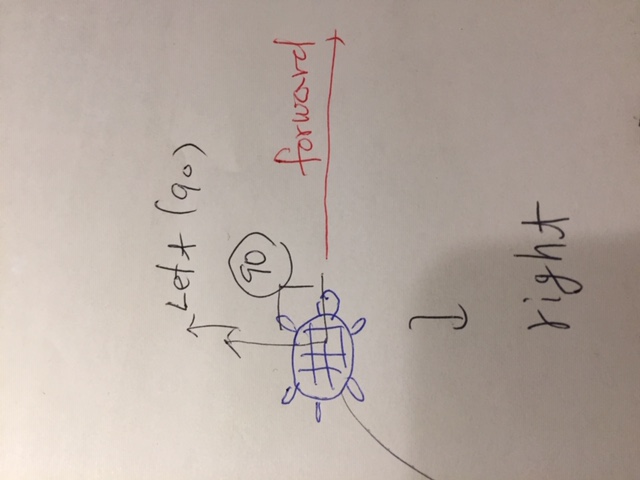 Left (90)
90
forward
right